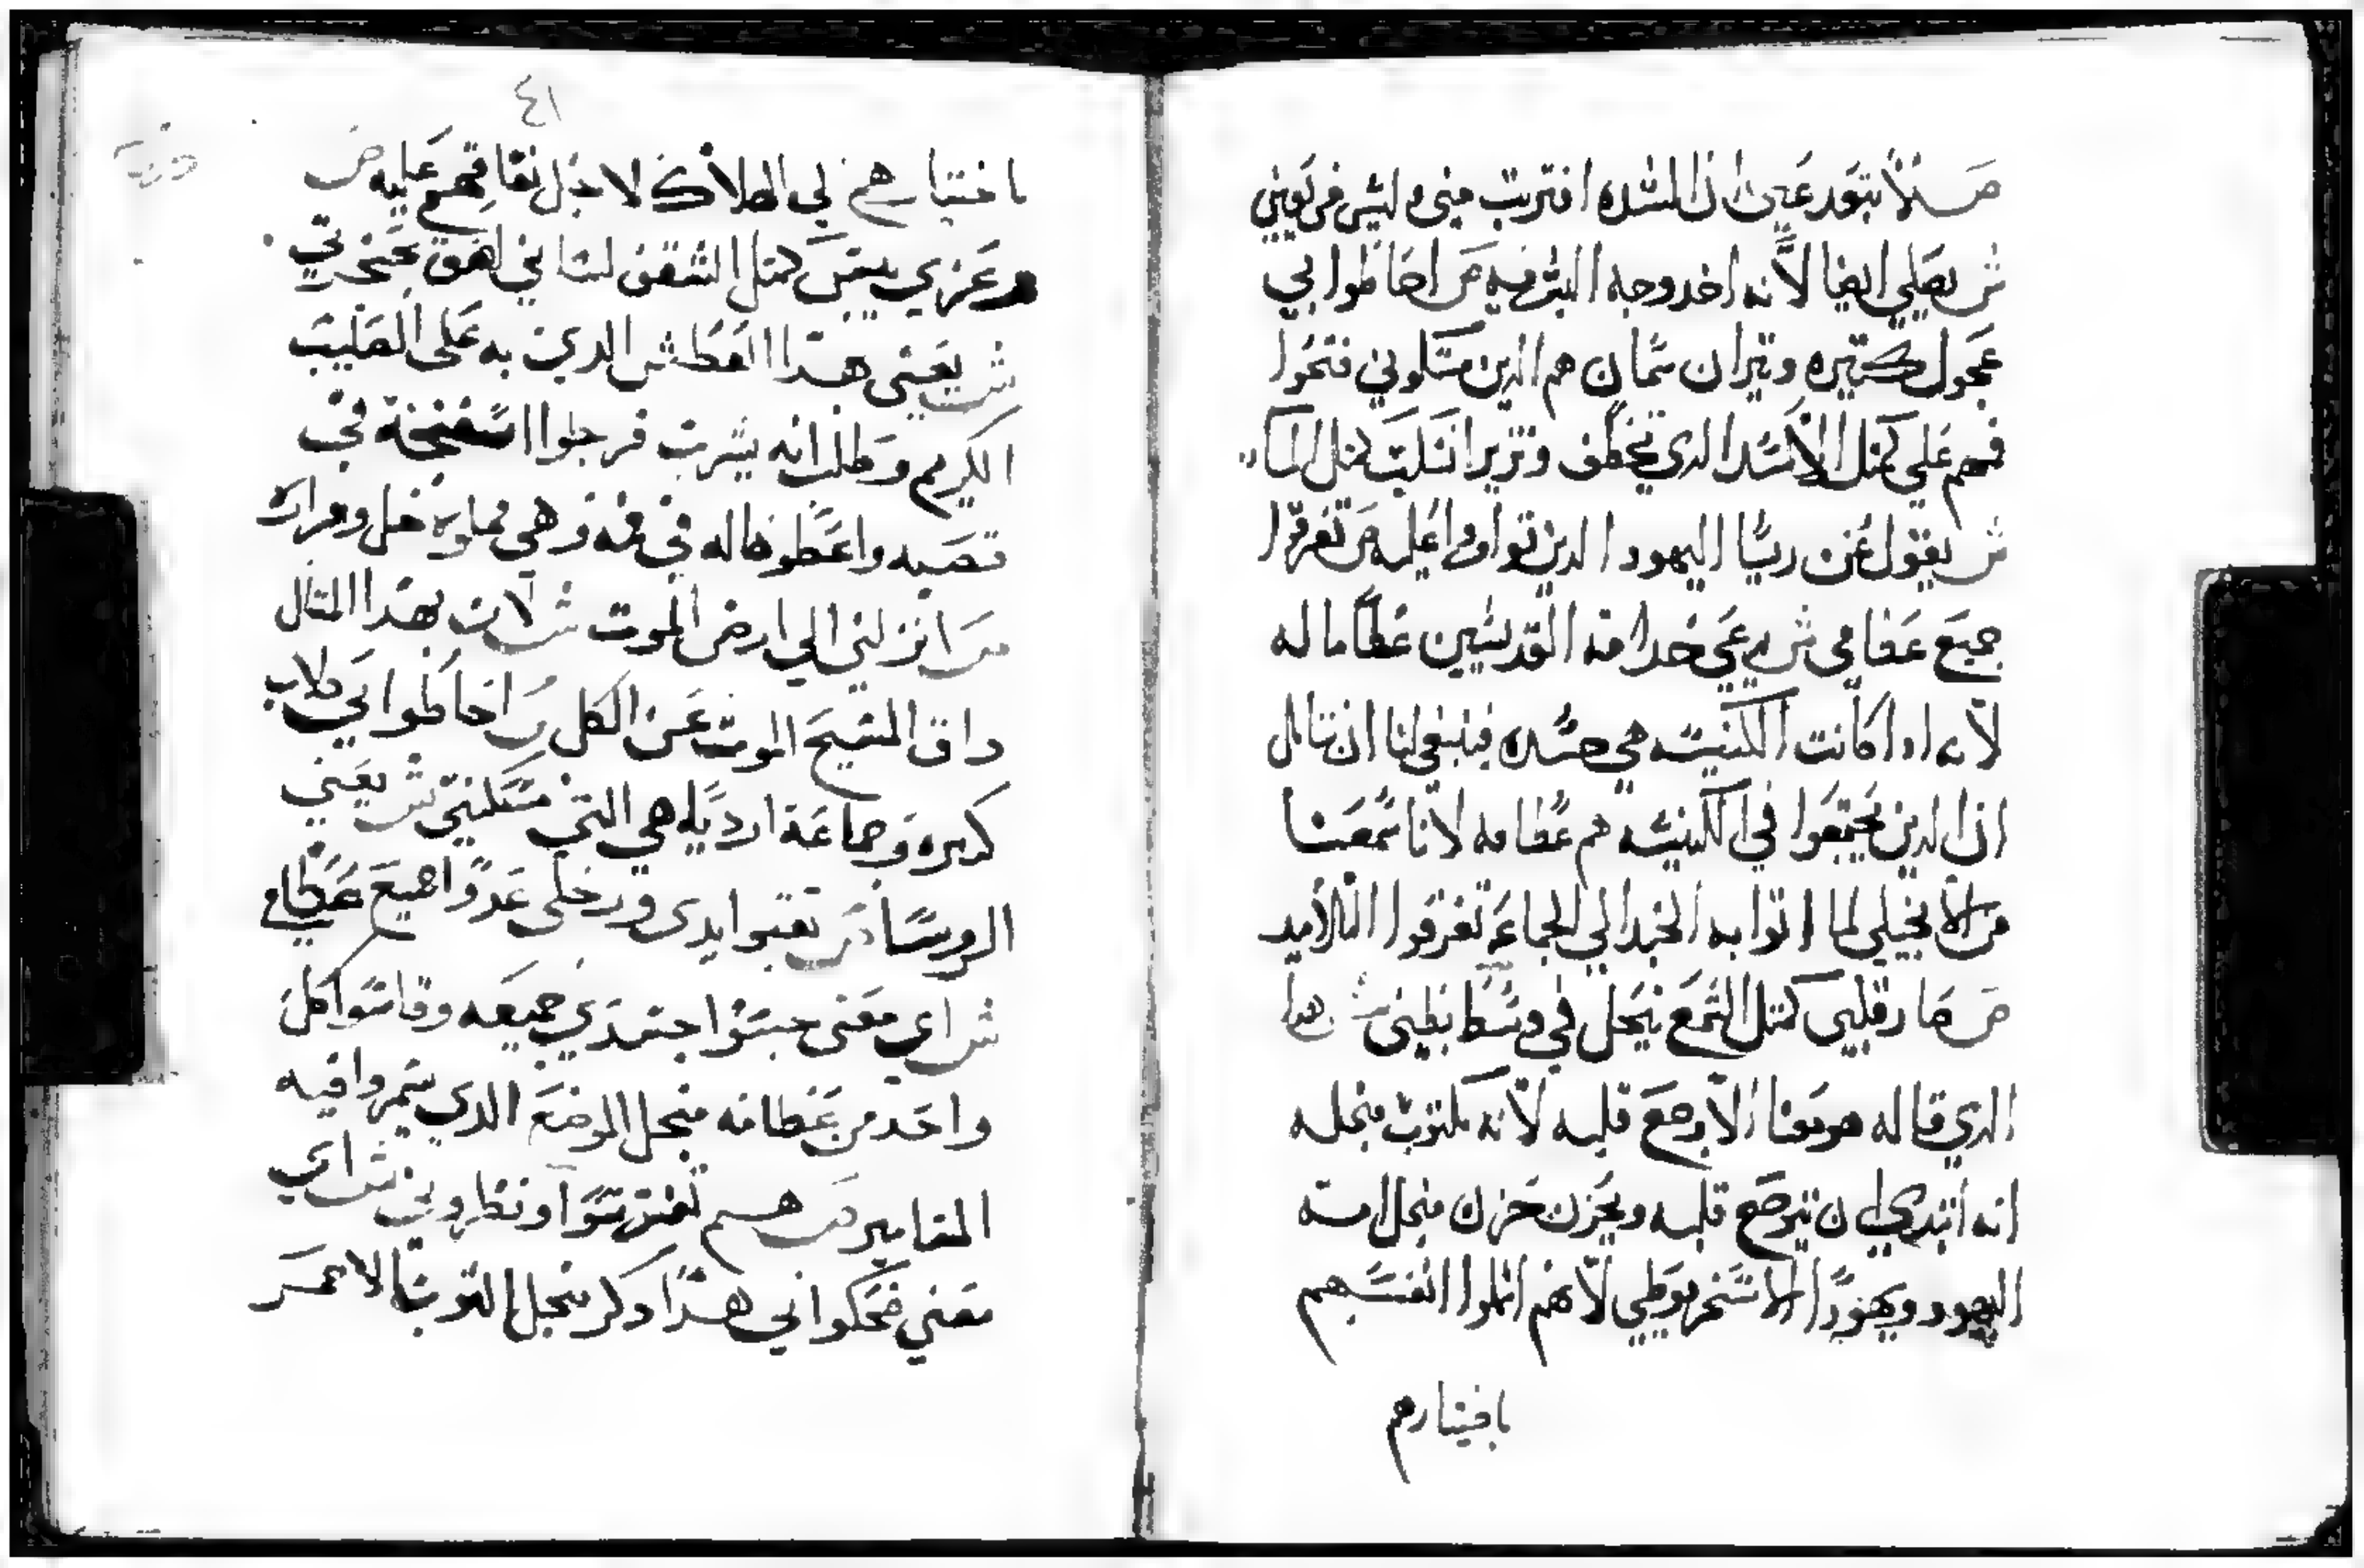 ص لا تبتعد عني ان الشده اقتربت مني وليس من يعين
ش يصلي ايضا لانه اخد وجه البشريه ص احاطوا بي
عجول كتيره وتيران سمان هم الدين مسكوني فتحوا
فمهم علي كمثل الاسد الدي يخطف ويزير انسكبت كمثل الماء
ش يقول عن ريسا اليهود الدين توامروا عليه ص تفرقوا
جميع عضامي ش يدعي خدامه القديسين عظاما له
لانه ادا كانت الكنيسه هي جسده فينبغي لنا ان نتامل
ان الدين يجتمعوا في الكنيسه هم عظامه لانا سمعنا
من الانجيلي لما اتوا به الجند الي الجماعه تفرقوا التلاميد
ص صار قلبي كمثل الشمع ينحل في وسط بطني ش هدا
الدي قاله هو معنا الا وجع قلبه لانه مكتوب منجله
انه ابتدي ان يتوجع قلبه ويحزن حزن منجل امته
اليهود ويهودا الاسخريوطي لانهم اتلوا انفسهم
باختيارهم
٤١
باختيارهم في الهلاك لاجل نفاقهم عليه ص
وعزي يبس كمثل الشقف لساني لصق بحنجرتي
ش يعني هدا العطش الدي به علي الصليب
الكريم وطلب انه يشرب فرجلوا اسفنجة في
قصبه واعطوها له في فمه وهي مملوه خل ومرار
ص انزلني الي ارض الموت ش لان بهدا المتال
داق المسيح الموت عن الكل ص احاطوا بي كلاب
كتيره وجماعة ارديا هي التي مسكتني ش يعني
الروسا ص تقبوا يدي ورجلي عدوا جميع عظامي
ش اي معني حبسوا جسدي جميعه وقاسوا كل
واحد من عظامه منجل الموضع الدي سمروا فيه
المسامير ص هم تفرسوا ونظروني ش اي
معني ضحكوا بي هدا دكر منجل التوب الاحمر